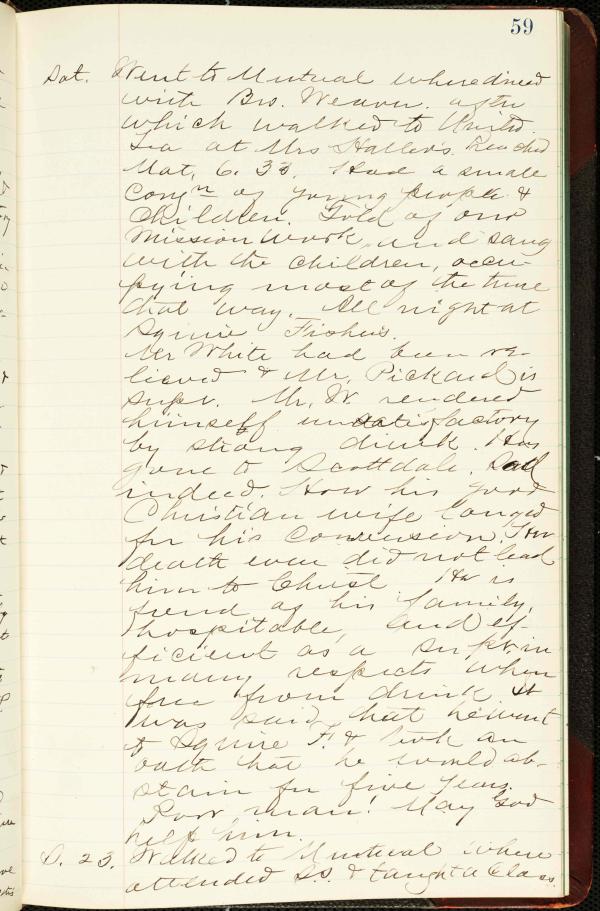 59
Sat. Went to Mutual where dined
with Bro. Weaver. after
which walked to United.
Tea at Mrs Haller's. Reached
Mat. 6.33. Had a small
congn of young people &
children. Told of our
mission work, and sang
with the children, occu-
pying most of the time
that way. All night at
Squire Fisher's.
Mr White had been re-
lieved & Mr. Pickard is
supt. Mr. W. rendered
himself unsatisfactory
by strong drink. Has
gone to Scottdale. Sad
indeed. How his good
Christian wife longed
for his conversion. Her
death even did not lead
him to Christ. He is
fond of his family,
hospitable, and ef-
ficient as a supt. in
many respects when
free from drink. It
was said that he went
to Squire F. & took an
oath that he would ab-
stain for five years.
Poor man! May God
help him.
S. 23. Walked to Mutual where
attended S.S. & taught a Class.